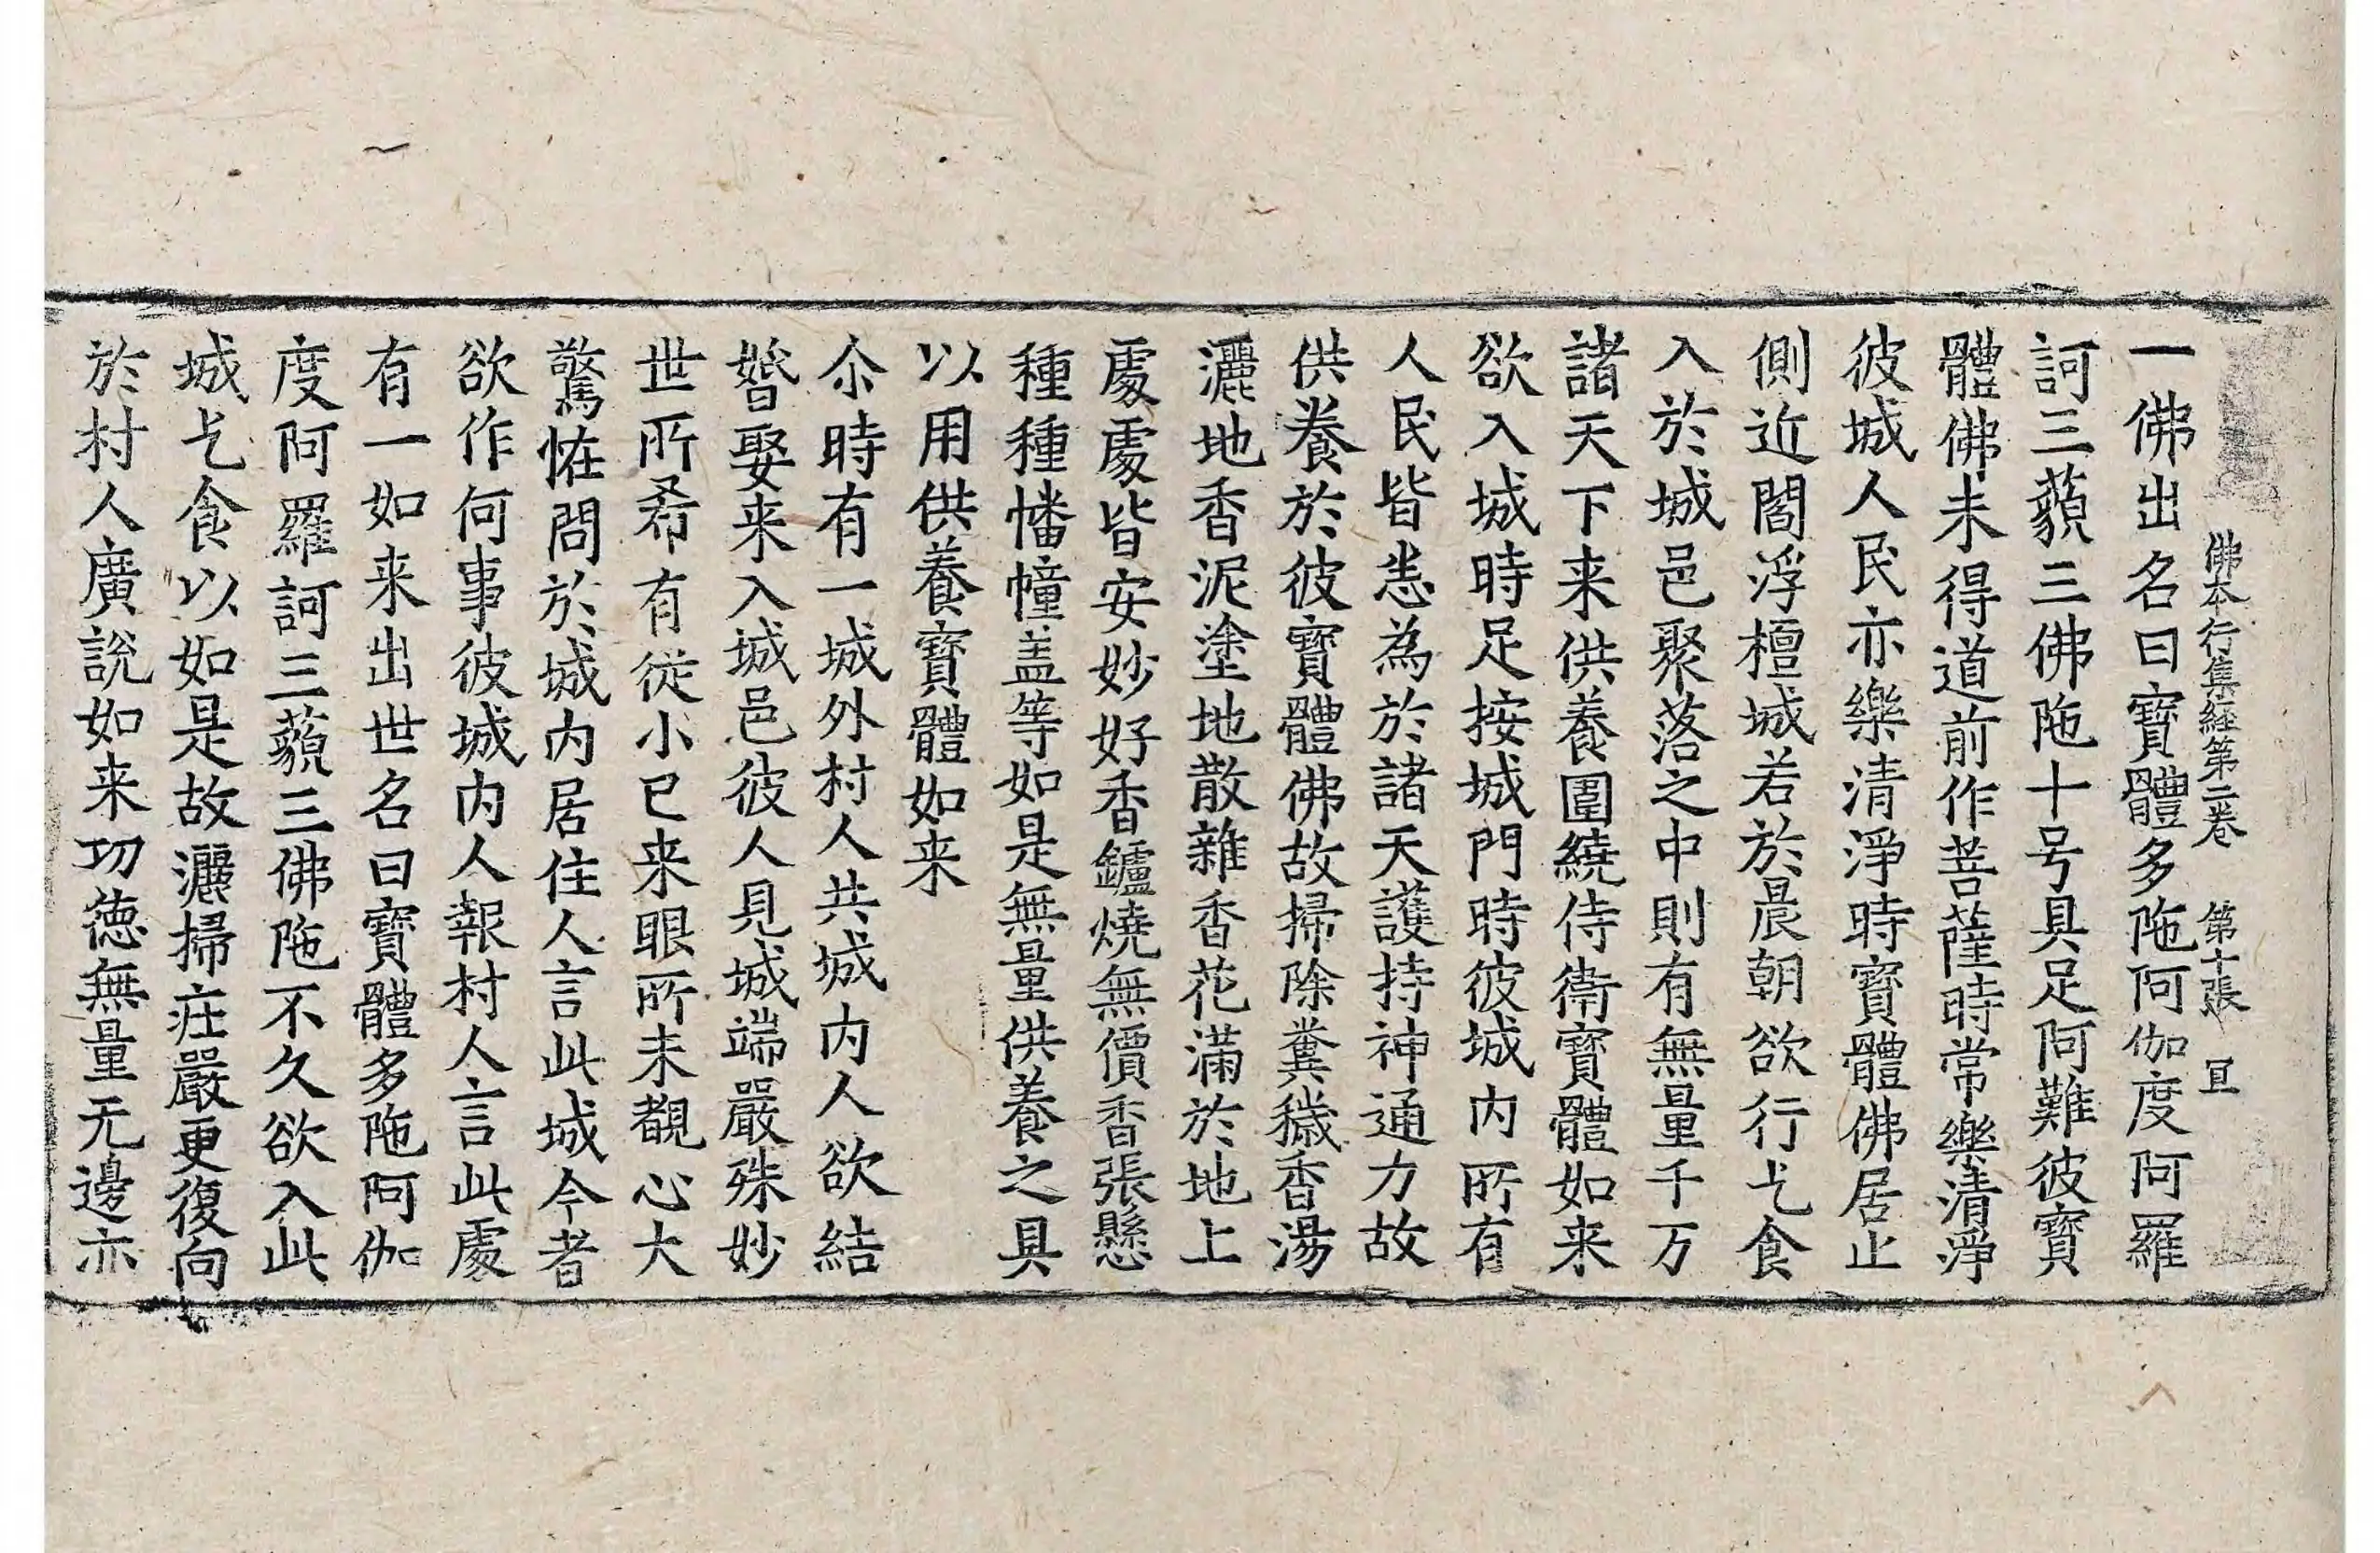 佛本行集經第二卷　第十張　冝
一佛出名曰寶體多陁阿伽度阿羅
訶三藐三佛陁十号具足阿難彼寶
體佛未得道前作菩薩時常樂清淨
彼城人民亦樂清淨時寶體佛居止
側近閻浮檀城若於晨朝欲行乞食
入於城邑聚落之中則有無量千万
諸天下来供養圍繞侍衛寶體如来
欲入城時足按城門時彼城内所有
人民皆悉為於諸天護持神通力故
供養於彼寶體佛故掃除糞穢香湯
灑地香泥塗地散雜香花滿於地上
處處皆安妙好香鑪燒無價香張懸
種種幡幢盖等如是無量供養之具
以用供養寶體如来
尒時有一城外村人共城内人欲結
婚娶来入城邑彼人見城端嚴殊妙
世所希有從小已来眼所未覩心大
驚恠問於城内居住人言此城今者
欲作何事彼城内人報村人言此處
有一如来出世名曰寶體多陁阿伽
度阿羅訶三藐三佛陁不久欲入此
城乞食以如是故灑掃庄嚴更復向
於村人廣說如来功德無量无邊亦